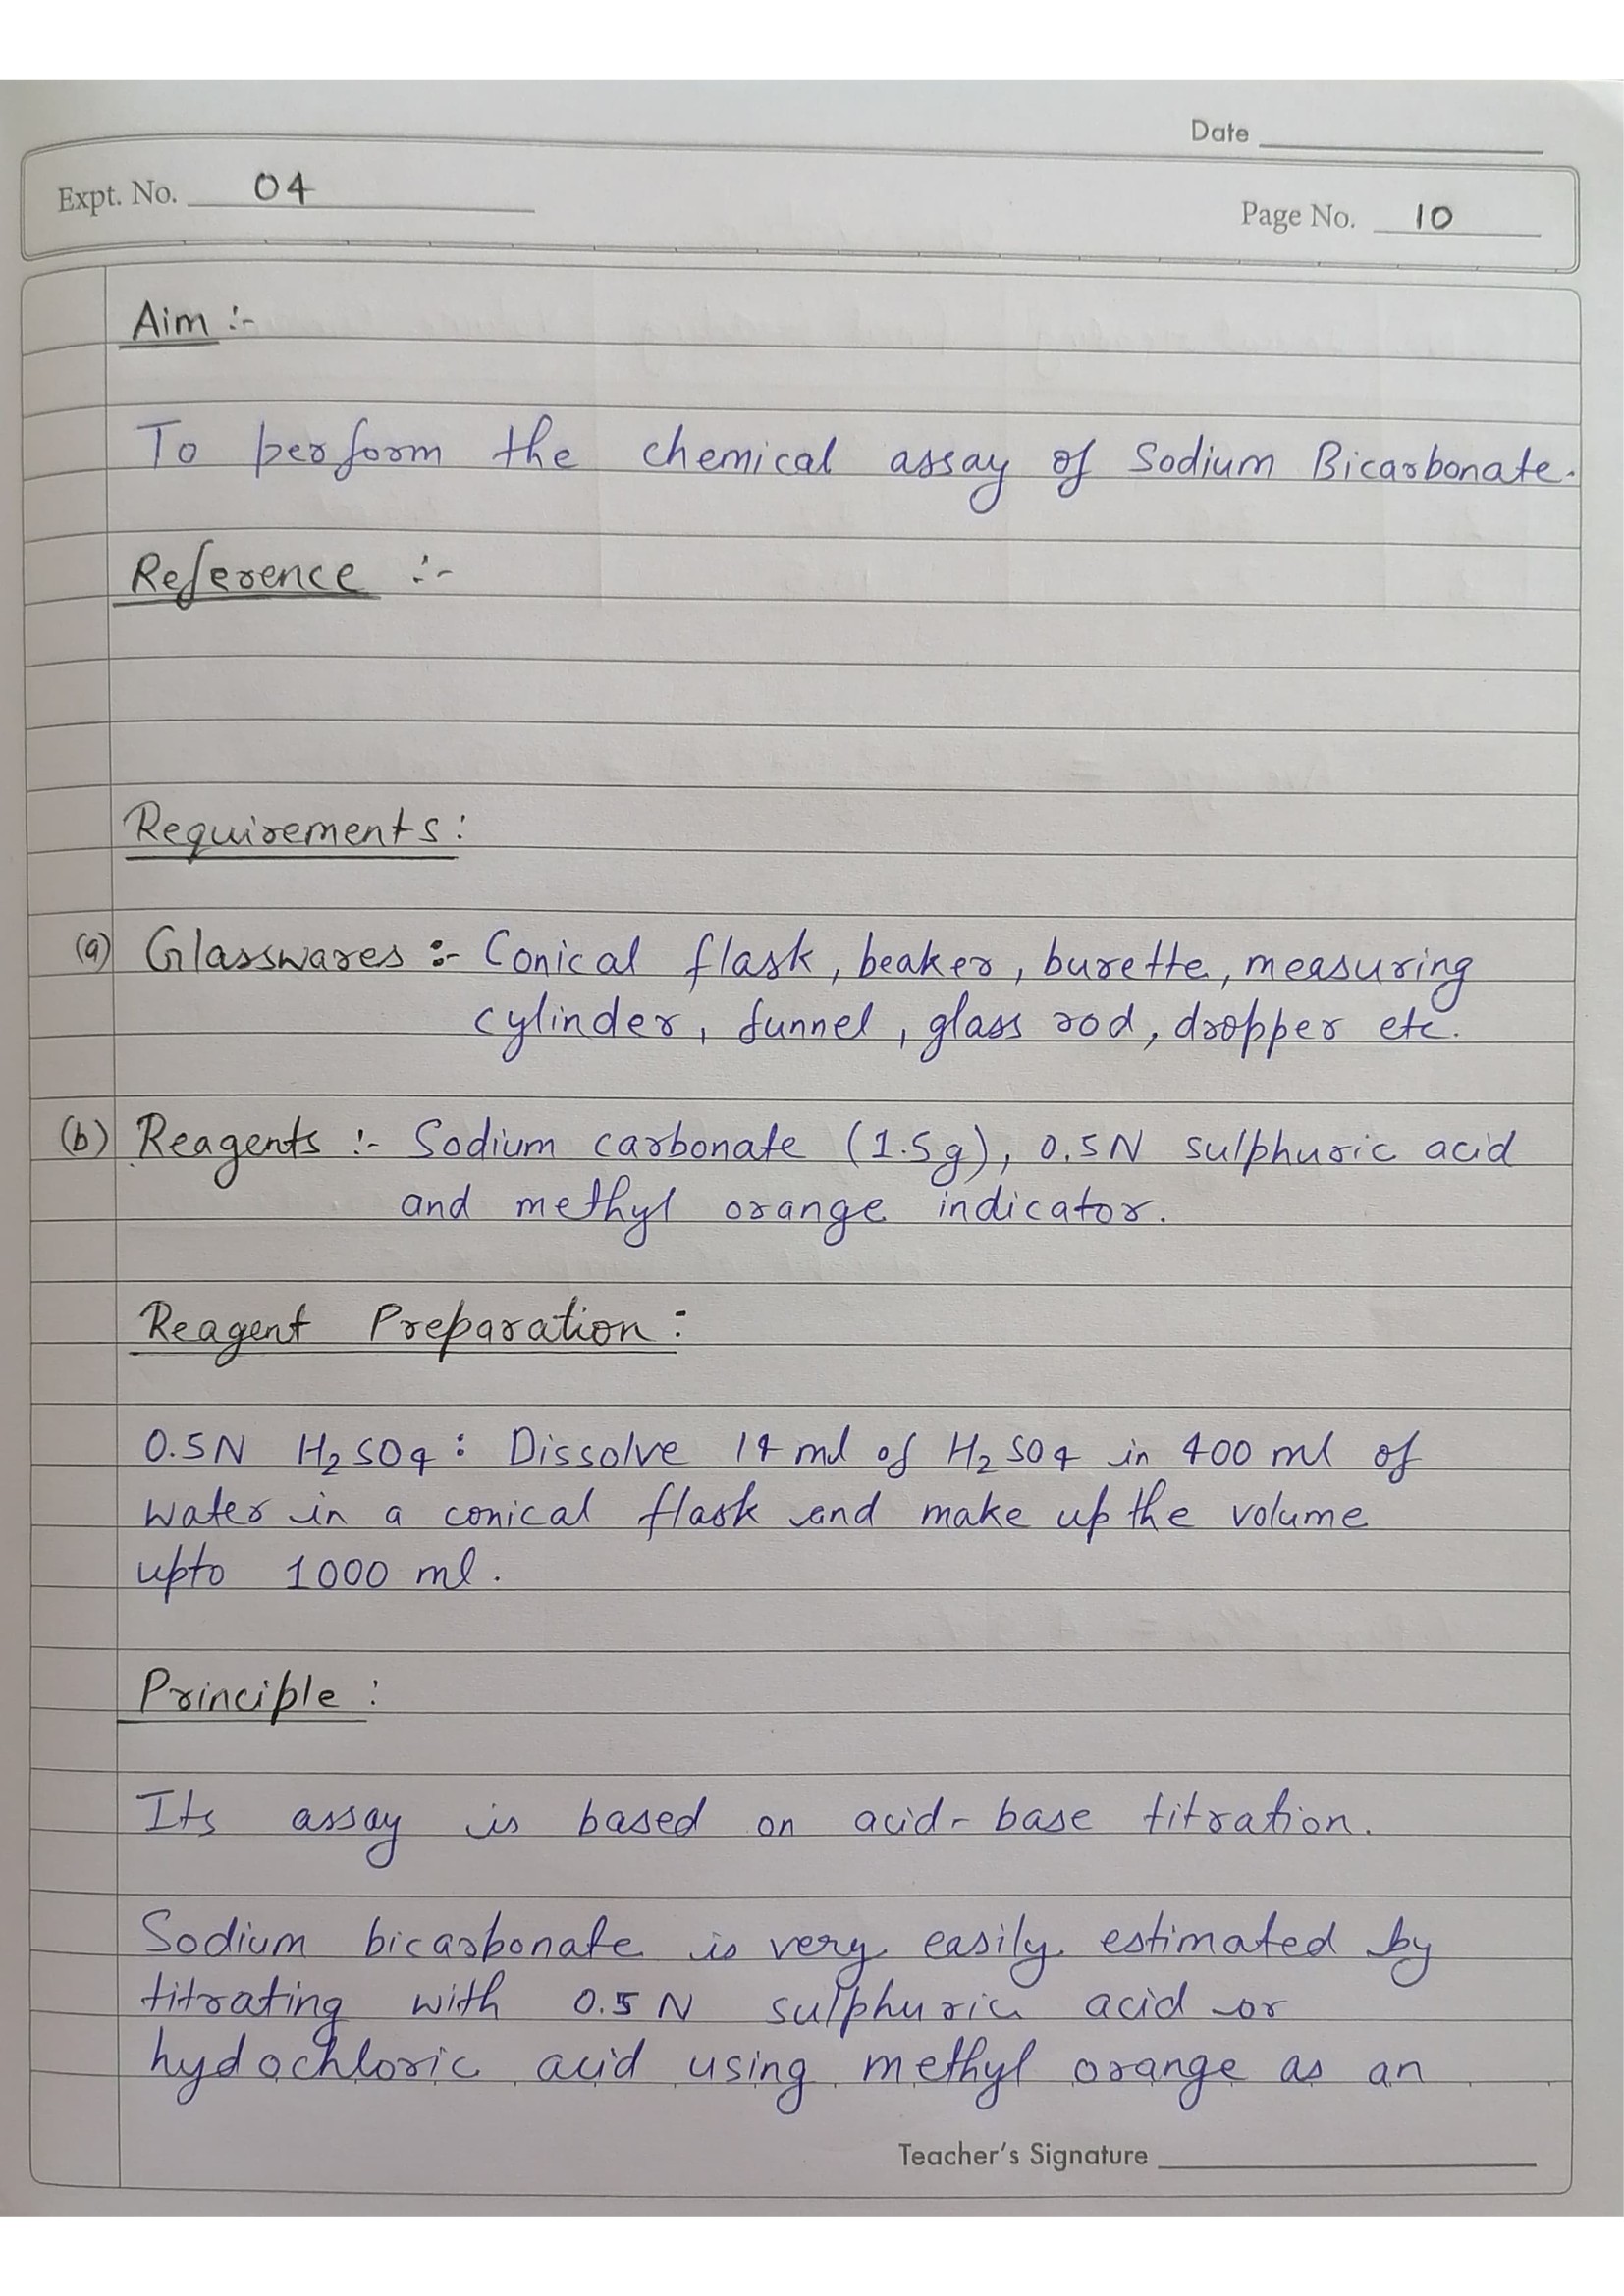 Date
Expt. No. 04
Page No. 10
Aim :-
To perform the chemical assay of Sodium Bicarbonate.
Reference :-
Requirements:
(a) Glasswares :- Conical flask, beaker, burette, measuring
cylinder, funnel, glass rod, dropper etc.
(b) Reagents :- Sodium carbonate (1.5g), 0.5N sulphuric acid
and methyl orange indicator.
Reagent Preparation :
0.5N H₂SO₄ : Dissolve 14 ml of H₂SO₄ in 400 ml of
water in a conical flask and make up the volume
upto 1000 ml.
Principle :
Its assay is based on acid-base titration.
Sodium bicarbonate is very easily estimated by
titrating with 0.5 N sulphuric acid or
hydochloric acid using methyl orange as an
Teacher's Signature